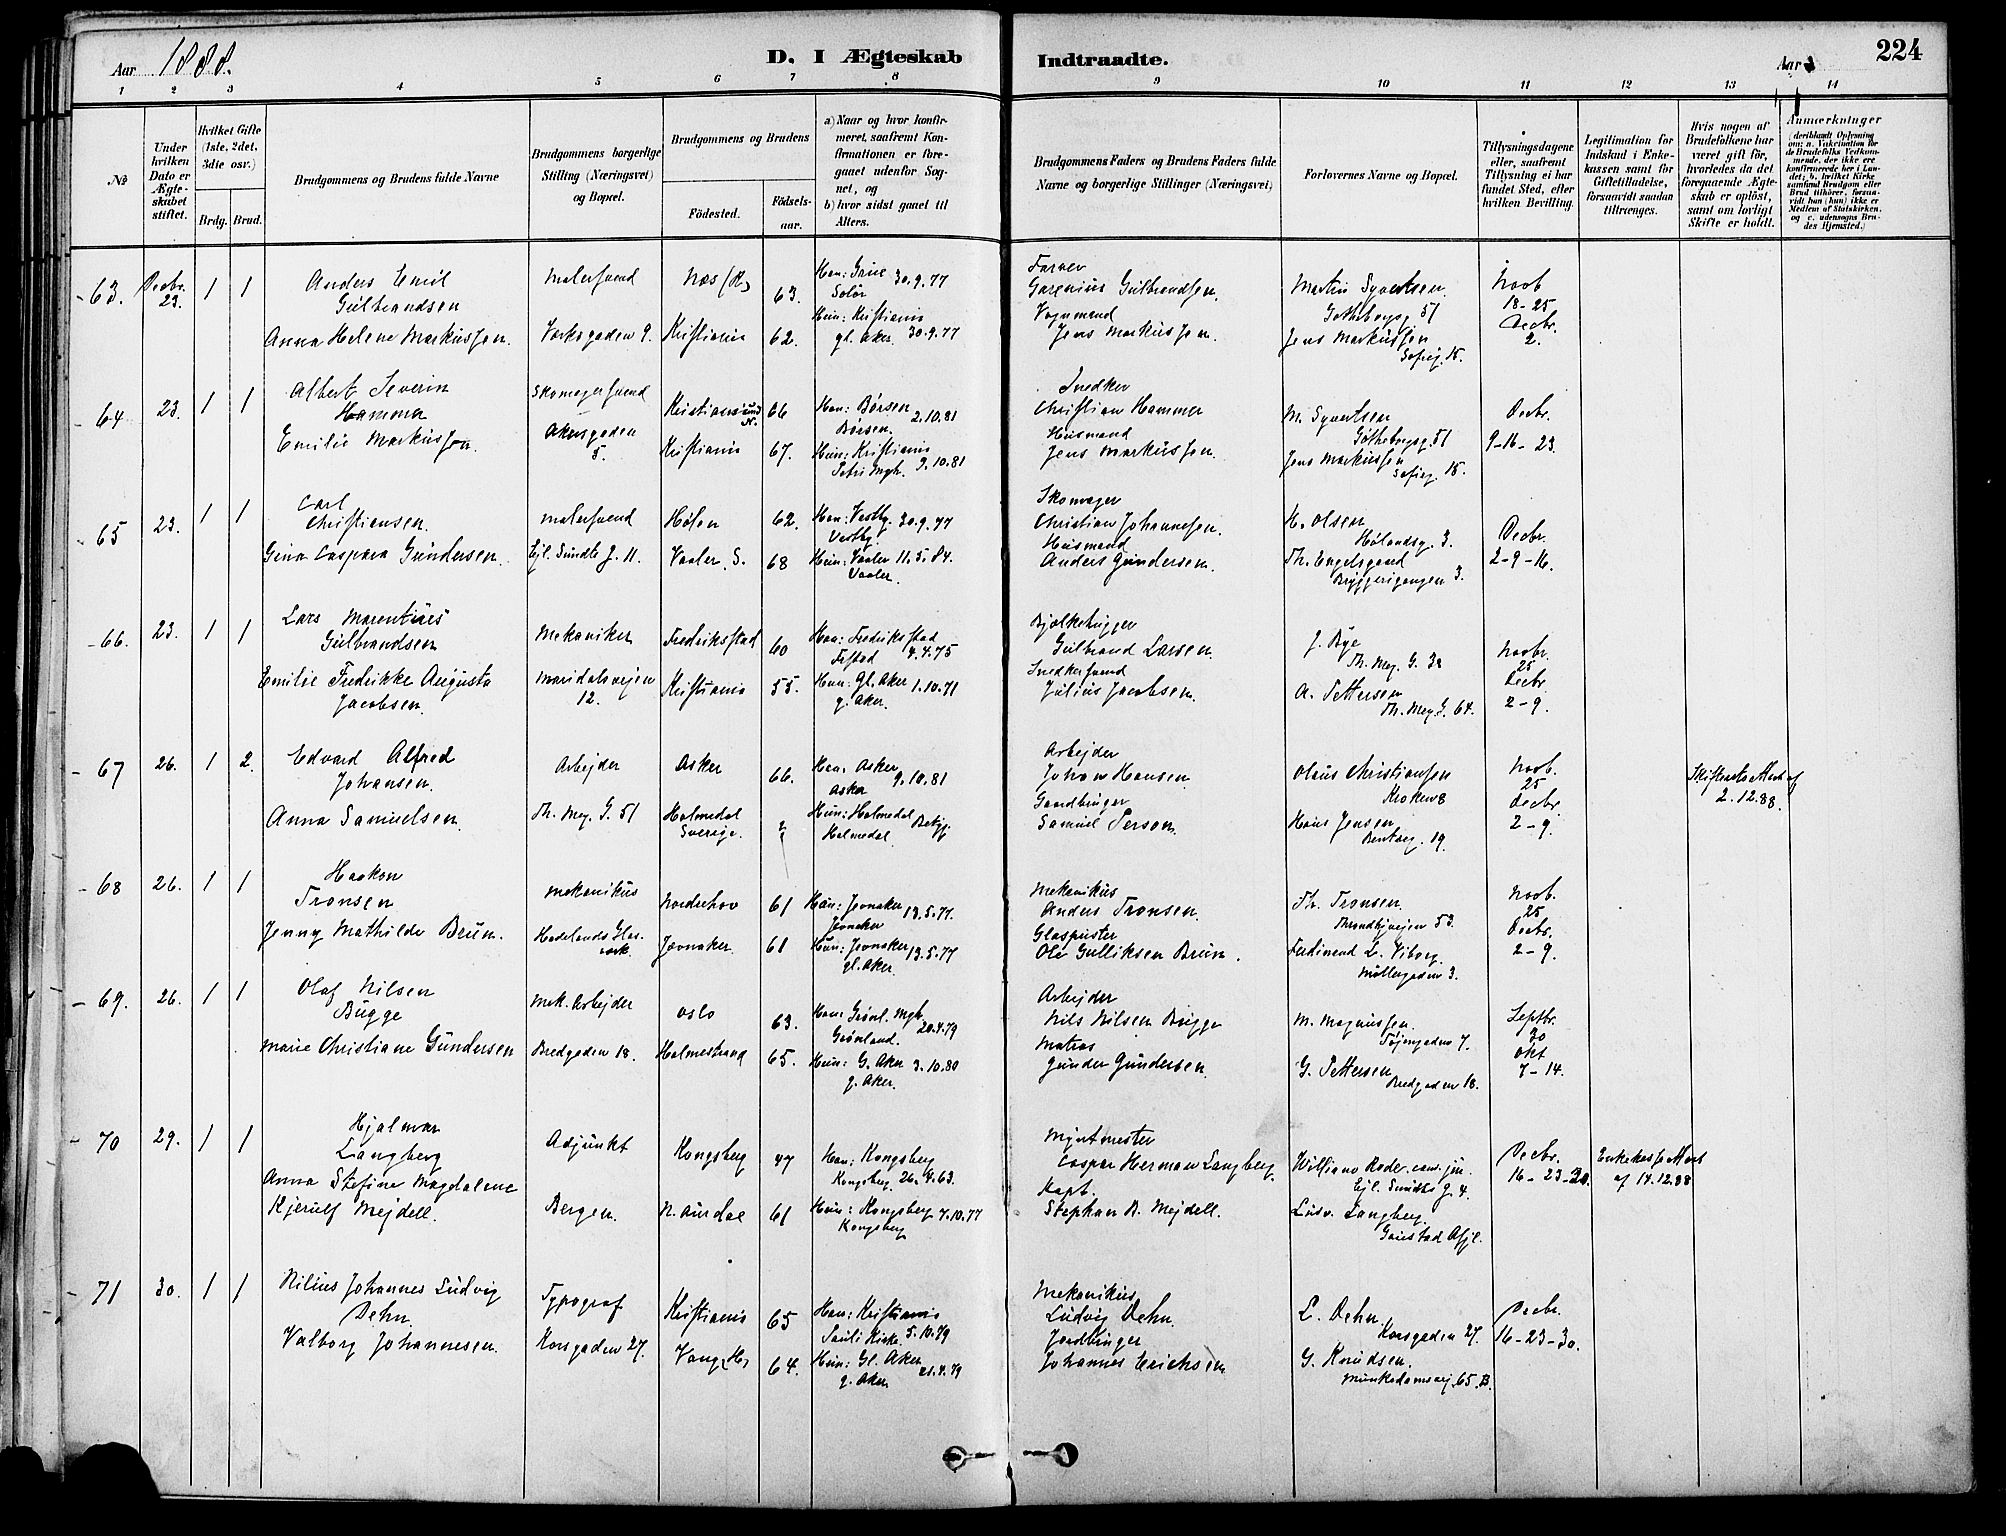 Aar 1888.
D. I Ægteskab Indtraadte.
Aar
224
1 2 3 4 5 6 7 8 9 10 11 12 13 14
№
Under hvilken Dato er Ægteskabet stiftet.
Hvilket Gifte (1ste, 2det, 3die osv.)
Brdg. Brud.
Brudgommens og Brudens fulde Navne
Brudgommens borgerlige Stilling (Næringsvei) og Bopæl.
Brudgommens og Brudens
Födested. Födselsaar.
a) Naar og hvor konfirmeret, saafremt Konfirmationen er foregaaet udenfor Sognet, og
b) hvor sidst gaaet til Alters.
Brudgommens Faders og Brudens Faders fulde Navne og borgerlige Stillinger (Næringsvei)
Forlovernes Navne og Bopæl.
Tillysningsdagene eller, saafremt Tillysning ei har fundet Sted, efter hvilken Bevilling.
Legitimation for Indskud i Enkekassen samt for Giftetilladelse, forsaavidt saadan tiltrænges.
Hvis nogen af Brudefolkene har været gift för, hvorledes da det foregaaende Ægteskab er oplöst, samt om lovligt Skifte er holdt.
Anmerkninger (deriblandt Oplysning om: a. Vakcination for de Brudefolks Vedkommende, der ikke ere konfirmerede her i Landet; b. hvilket Kirkesamfund Brudgom eller Brud tilhörer, forsaavidt han (hun) ikke er Medlem af Statskirken, og c. udensogns Brudes Hjemsted.)
63. Decbr. 23. 1 1
Anders Emil
Gulbrandsen
Malersvend
Næs (R) 63.
Han: Grue 30.9.77
Solør
Farver
Gulbrandsen.
Martin Syvertsen
Gotheborgg. 51
Novb.
18-25
Anna Helene Markussen.
Verksgaden 9.
Kristiania 62.
Hun: Kristiania
gl. Aker. 30.9.77
Vognmand
Jens Markussen.
Jens Markussen
Sofieg. 15.
Decbr.
2.
64 23. 1 1
Albert Severin
Hammer
Skomagersvend
Kristianssund N. 66
Han: Børsen 2.10.81
Børsen.
Snedker
Christian Hammer
M. Syvertsen
Gøtheborgg. 51
Decbr.
9-16-23.
Emilie Markussen
Akersgaden
5.
Kristiania 67.
Hun: Kristiania
Petri Mgh. 9.10.81
Husmand
Jens Markussen.
Jens Markussen
Sofieg. 15.
65 23. 1 1
Carl
Christiansen.
Malersvend
Hølen 62.
Han: Vestby. 30.9.77
Vestby
Skomager
Christian Johannesen.
H. Olsen
Hølandsg. 3.
Decbr.
2-9-16.
Gina Caspara Gundersen.
Ejl. Sundts G. 11.
Vaaler, S. 68
Hun: Vaaler 11.5.84.
Vaaler.
Husmand
Anders Gundersen.
Th. Engelsgaard
Bryggerigangen 3.
66. 23. 1 1
Lars Marentius
Gulbrandsen
Mekaniker
Fredriksstad 60
Han: Fredriksstad
Fstad 4.4.75
Bjelkehugger
Gulbrand Larsen.
J. Bye
Th. Mey. G. 32
Novbr.
25
Emilie Fredrikke Augusta
Jacobsen.
Maridalsveien
12.
Kristiania 55.
Hun: Gl. Aker 1.10.71
g. Aker.
Snedkersvend
Julius Jacobsen.
A. Pettersen
Th. Mey. G. 64.
Decbr.
2-9.
67 26. 1 2.
Edvard Alfred
Johansen.
Arbejder
Asker 66.
Han: Asker 9.10.81
Asker
Arbejder
Johan Hansen.
Olaus Christiansen
Kroken 8
Novb.
25
Skifteratt. af
2.12.88.
Anna Samuelsen.
Th. Mey. G. 51
Holmedal
Sverige. ?
Hun: Holmedal
Holmedal.
Gaardbruger
Samuel Person.
Hans Jensen
Bentseg. 19.
Decbr.
2-9.
68 26. 1 1
Haakon
Tronsen
Mekanikus
Norderhov 61
Han: Jevnaker 13.5.77.
Jevnaker
Mekanikus
Anders Tronsen.
Th. Tronsen.
Trondhjveien 53.
Novb.
25
Jenny Mathilde Brun.
Hadelands Glasverk.
Jevnaker. 61
Hun: Jevnaker 13.5.77
gl. Aker.
Glaspuster
Ole Gulliksen Brun.
Ferdinand L. Viborg.
Møllergaden 3.
Decbr.
2-9.
69. 26. 1 1
Olaf Nilsen
Bugge
Mek. Arbejder
Oslo 63.
Han: Grønl. Mgh. 20.4.79
Grønland.
Arbejder
Nils Nilsen Bugge
M. Magnussen.
Tøjengaden 7.
Septbr.
30
Marie Christiane Gundersen
Bredgaden 18.
Holmestrand 65.
Hun: G. Aker 3.10.80
g. Aker.
Matros
Gunder Gundersen.
G. Pettersen
Bredgaden 18.
Okt
7-14.
70 29. 1 1
Hjalmar
Langberg
Adjunkt
Kongsberg 47
Han: Kongsberg
Kongsberg. 26.4.63.
Myntmester
Caspar Herman Langberg
William Rode. cand. jur.
Ejl. Sundts G. 4.
Decbr.
16-23-30.
Enkekasse Attest
af 14.12.88
Anna Stefine Magdalene
Kjerulf Mejdell.
Bergen.
N. Aurdal 61
Hun: Kongsberg 7.10.77
Kongsberg
Kapt.
Stephan B. Mejdell.
Ludv. Langberg.
Gaustad Asyl.
71 30. 1 1
Nilius Johannes Ludvig
Dehn.
Typograf
Kristiania 65
Han: Kristiania
Pauli Kirke. 5.10.79
Mekanikus.
Ludvig Dehn.
L. Dehn.
Korsgaden 27.
Decbr.
16-23-30.
Valborg Johannesen.
Korsgaden 27.
Vang (H) 64.
Hun: Gl. Aker
g. Aker. 21.4.79
Jordbruger
Johannes Erichsen
G. Knudsen.
Munkedamsvej. 65.B.